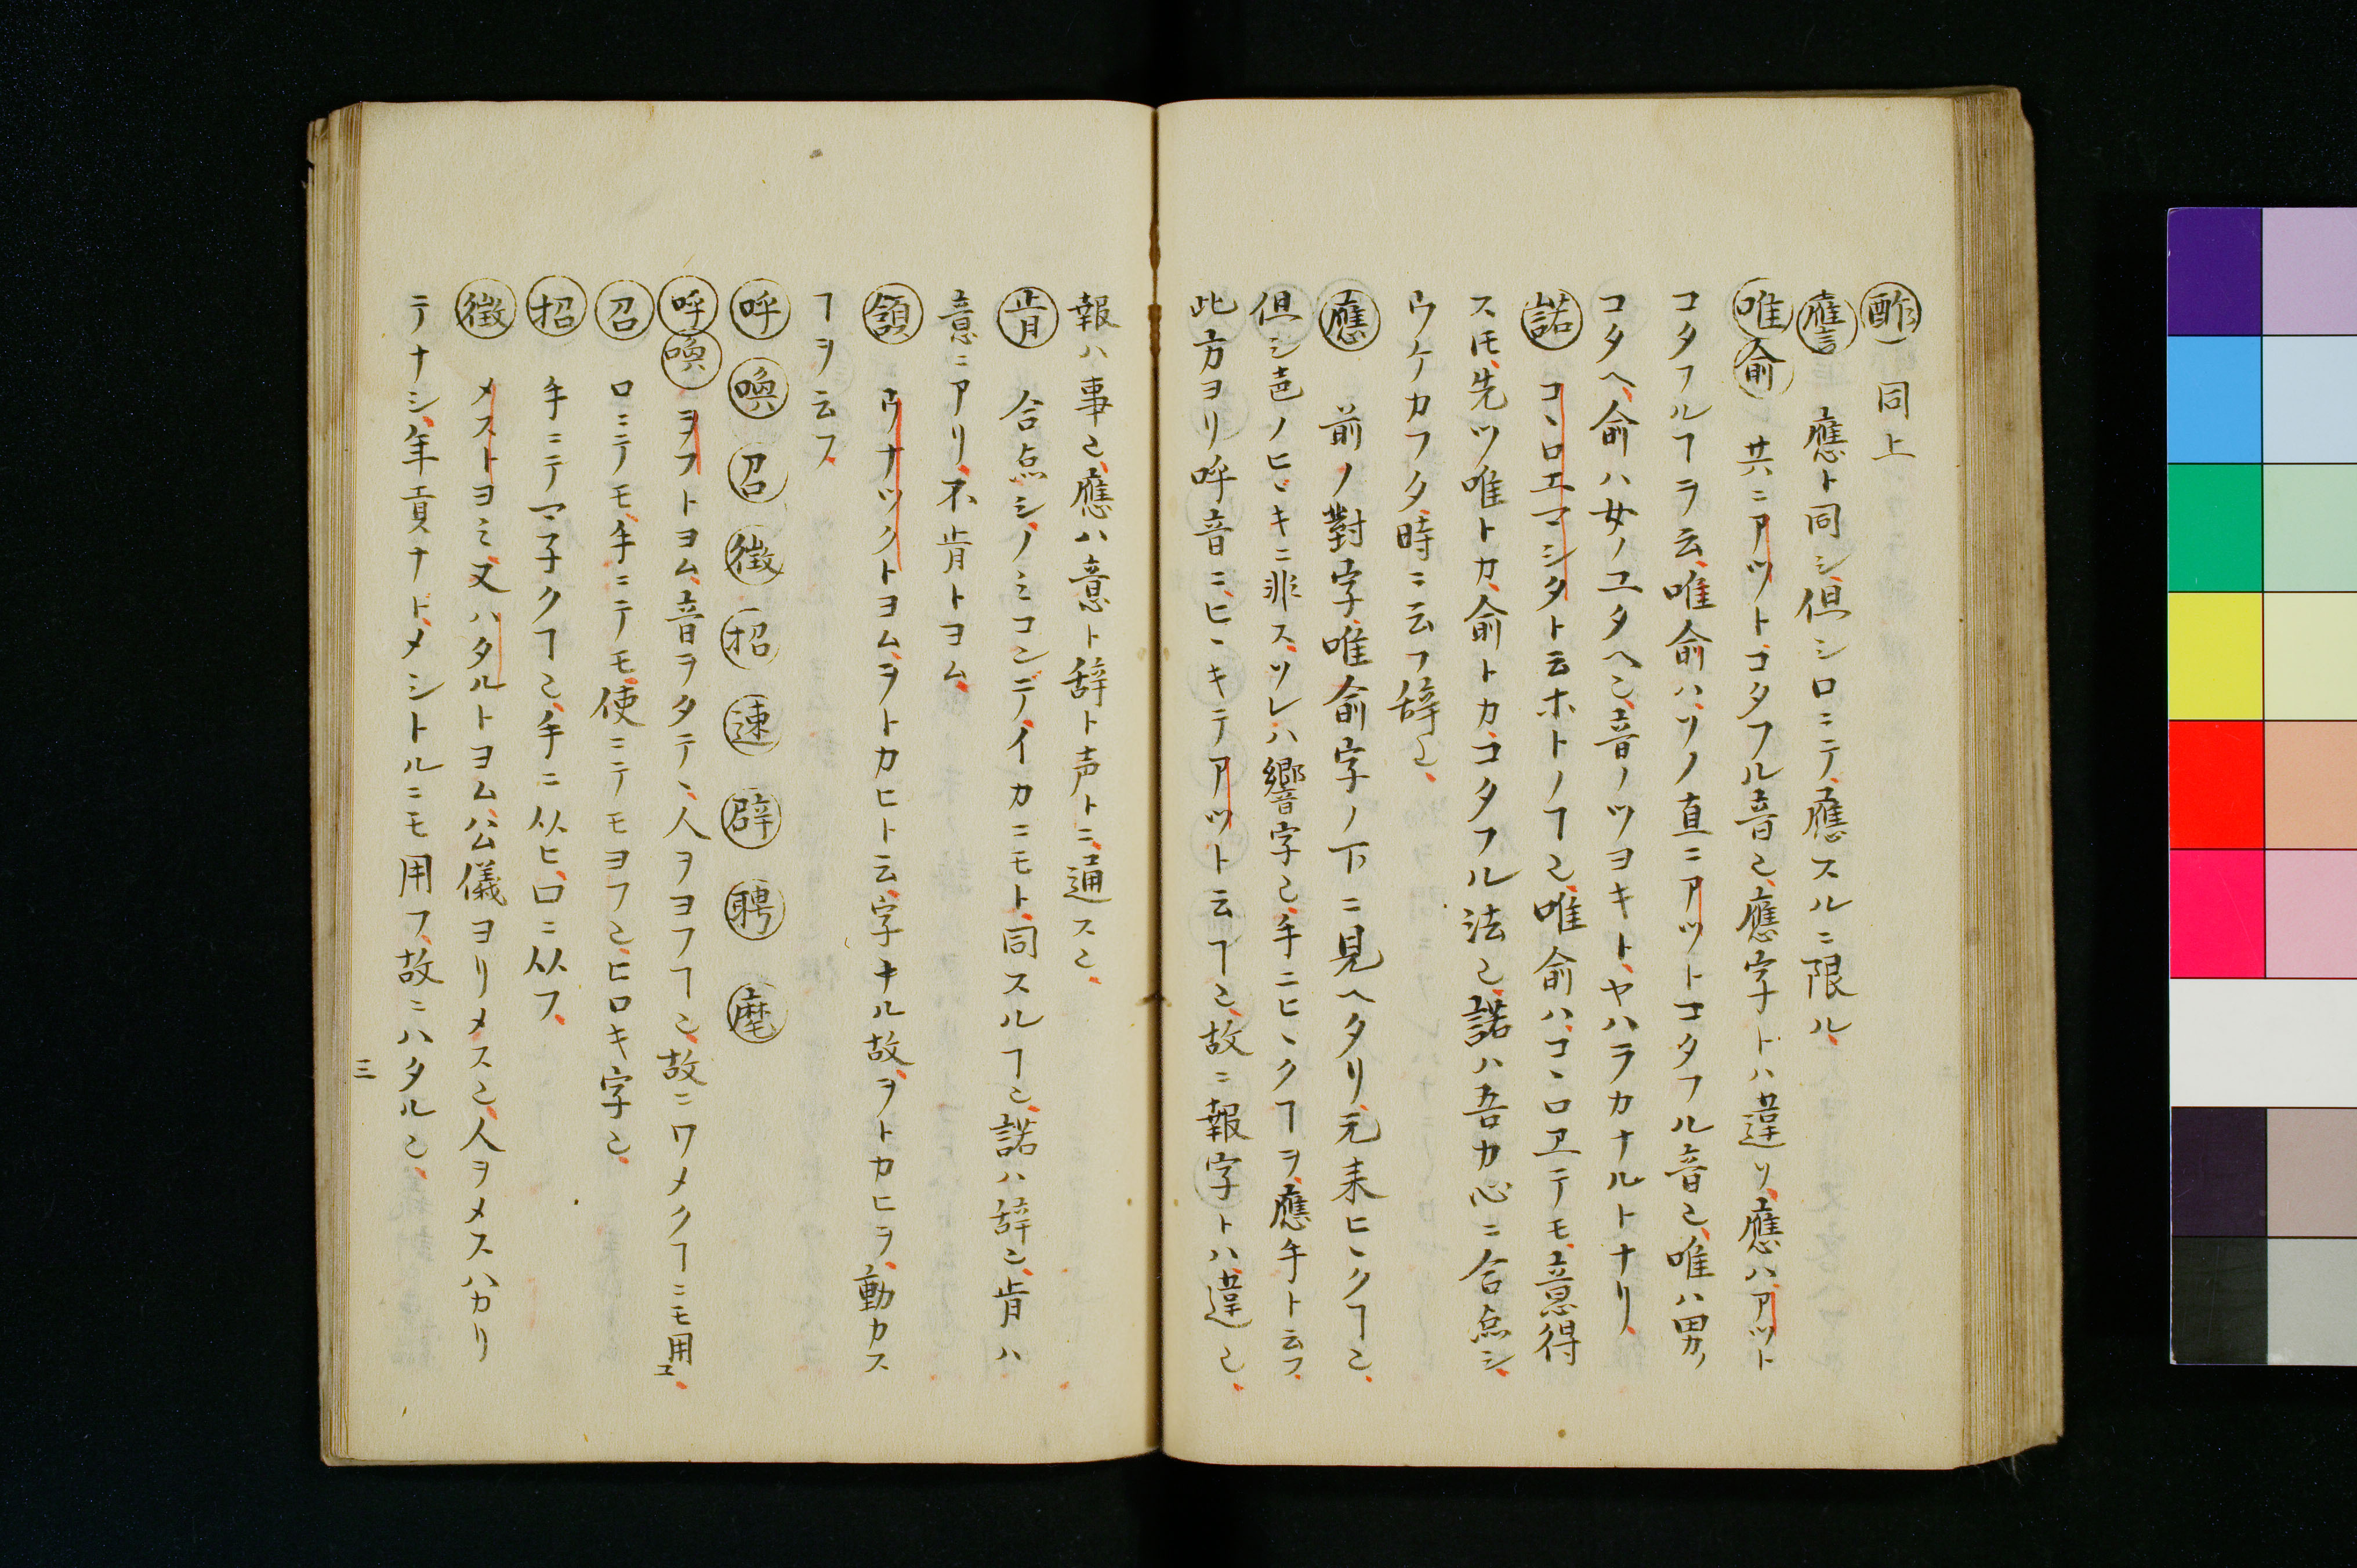 酢 同上
譍 應ト同シ但シ口ニテ應スルニ限ル
唯俞 共ニアツトコタフル音也、應字トハ違リ、應ハアツト
コタフルヿヲ云、唯俞ハソノ直ニアツトコタフル音也、唯ハ男ノ
コタヘ、俞ハ女ノコタヘ也、音ノツヨキト、ヤハラカナルトナリ、
諾 コヽロエマシタト云ホトノヿ也、唯俞ハコヽロヱテモ意得
ストモ、先ツ唯トカ、俞トカ、コタフル法也、諾ハ吾カ心ニ合点シ、
ウケカフタ時ニ云フ辞也、
應 前ノ對字、唯俞字ノ下ニ見ヘタリ、元来ヒヽクヿ也、
但シ声ノヒヽキニ非ス、ソレハ響字也、手ニヒヽクヿヲ、應手ト云フ、
此方ヨリ呼音ニヒヽキテアツト云ヿ也、故ニ報字トハ違也、
報ハ事也、應ハ意ト辞ト声トニ通ス也、
肯 合点シノミコンデ、イカニモト同スルヿ也、諾ハ辞也、肯ハ
意ニアリ、不肯トヨム、
頷 ウナツクトヨム、ヲトカヒト云字ナル故、ヲトカヒヲ、動カス
ヿヲ云フ、
呼 喚 召 徴 招 速 辟 聘 麾
呼喚 ヲフトヨム、音ヲタテヽ人ヲヨフヿ也、故ニワメクヿニモ用ユ、
召 口ニテモ、手ニテモ、使ニテモヨフ也、ヒロキ字也、
招 手ニテマ子クヿ也、手ニ从ヒ、口ニ从フ、
徴 メストヨミ、又ハタルトヨム、公儀ヨリメス也、人ヲメスハカリ
テナシ、年貢ナト、メシトルニモ用フ、故ニハタル也、
三